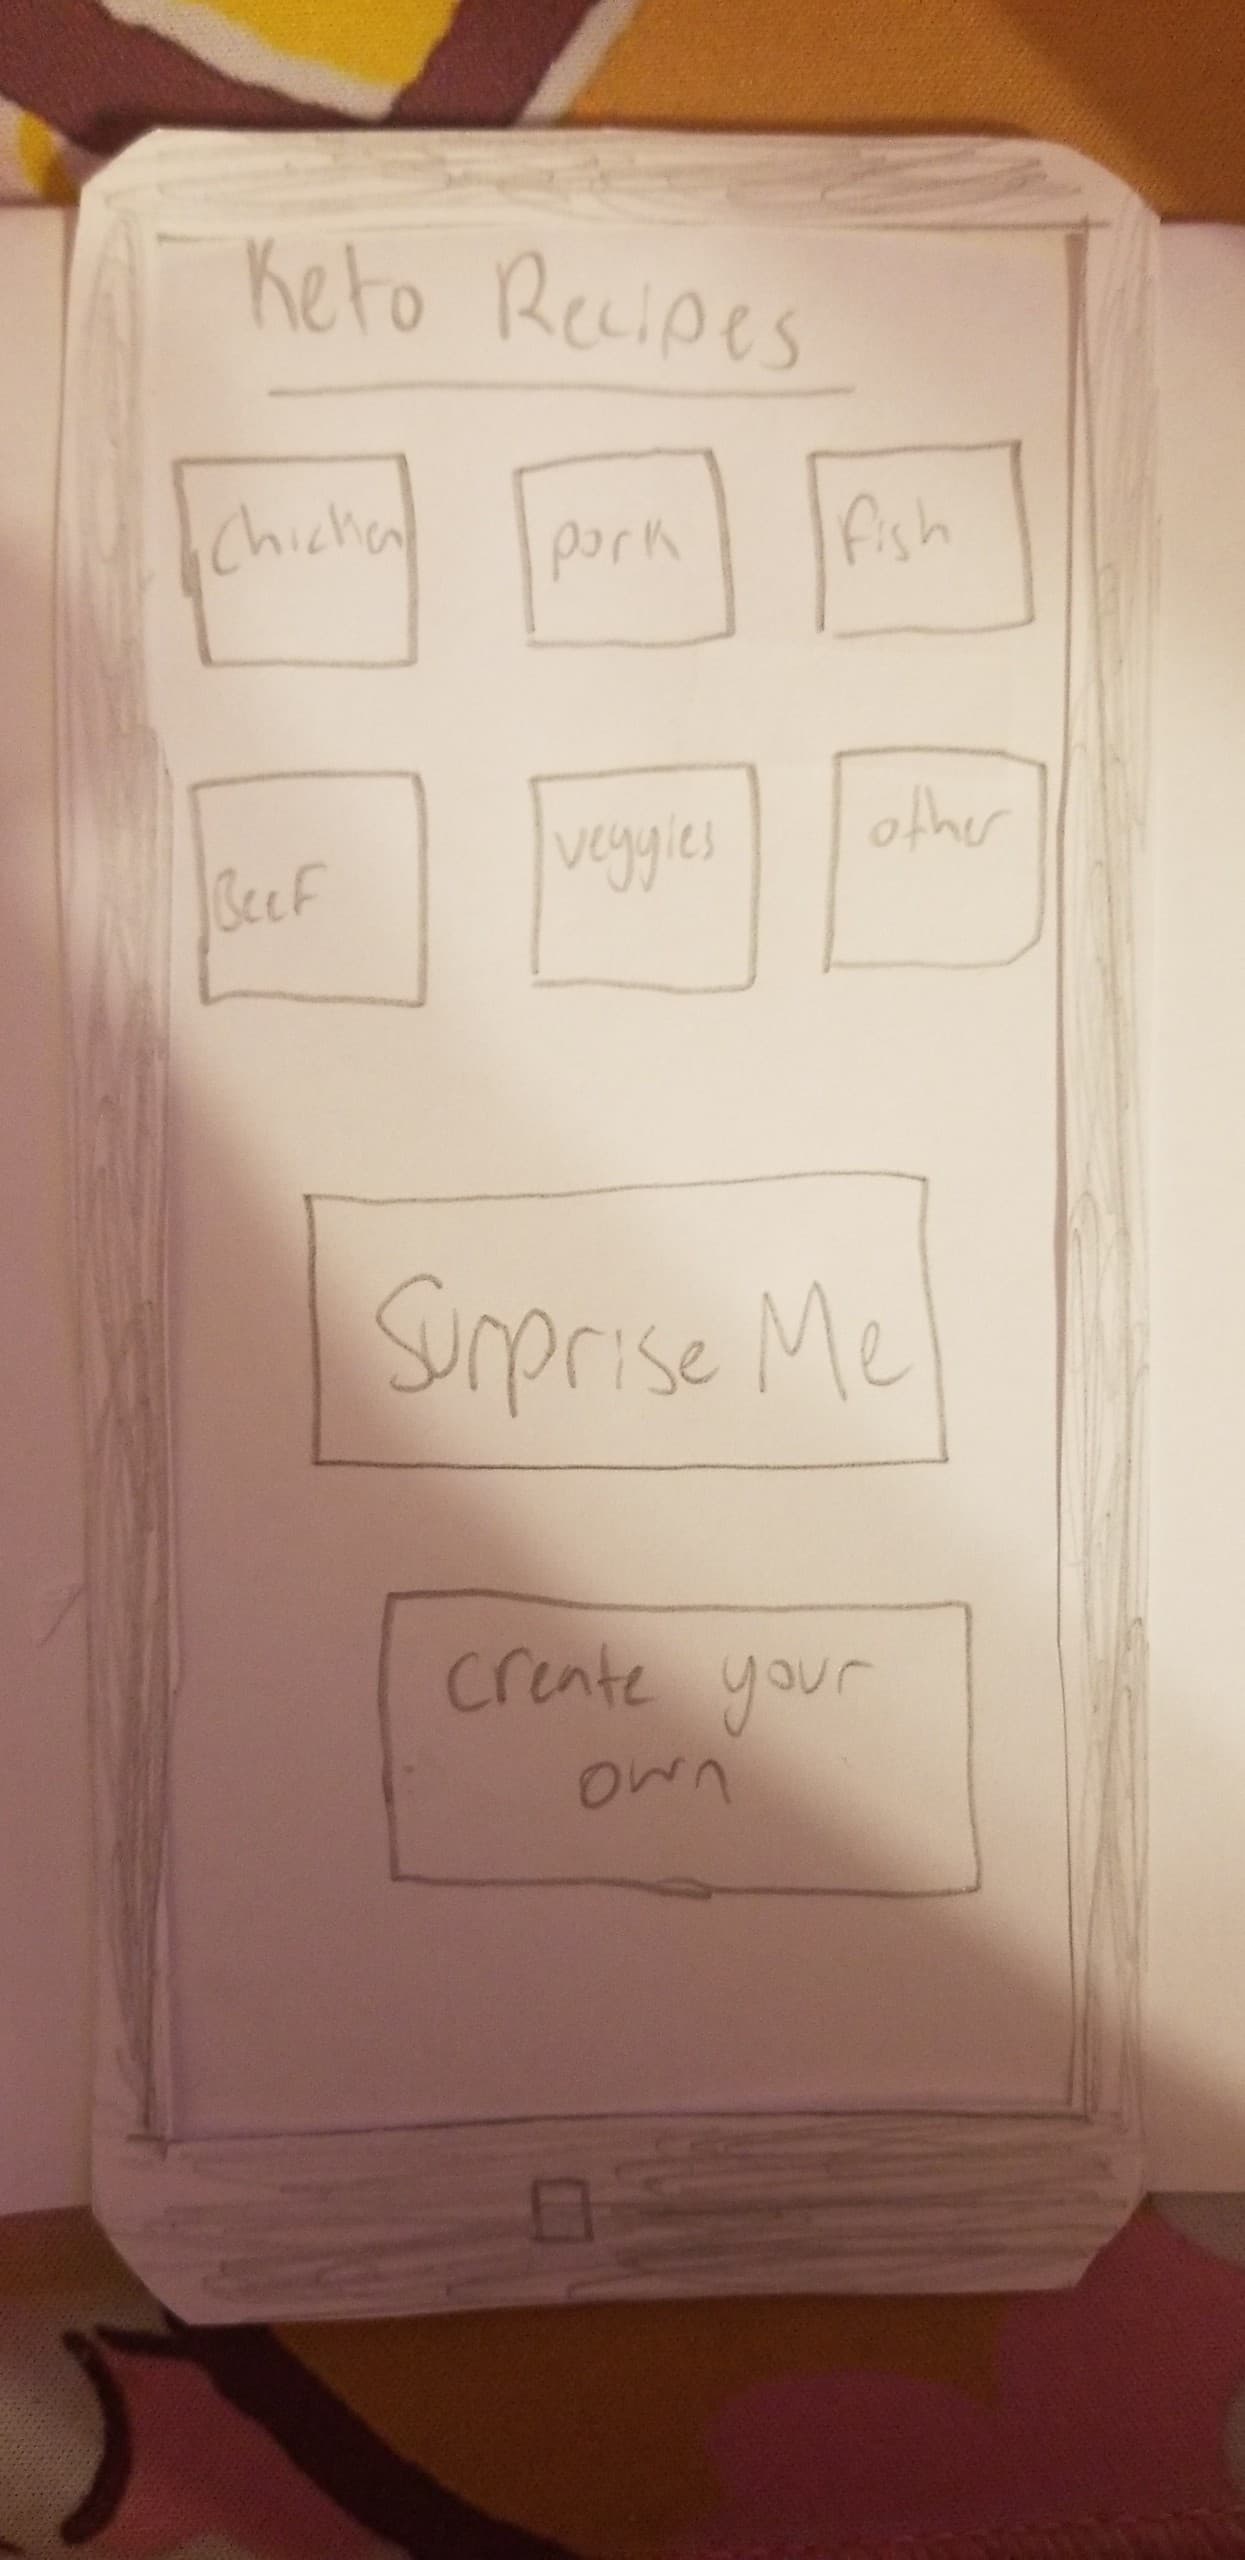 Keto Recipes
Chicken
pork
fish
Beef
veggies
other
Surprise Me
create your
own